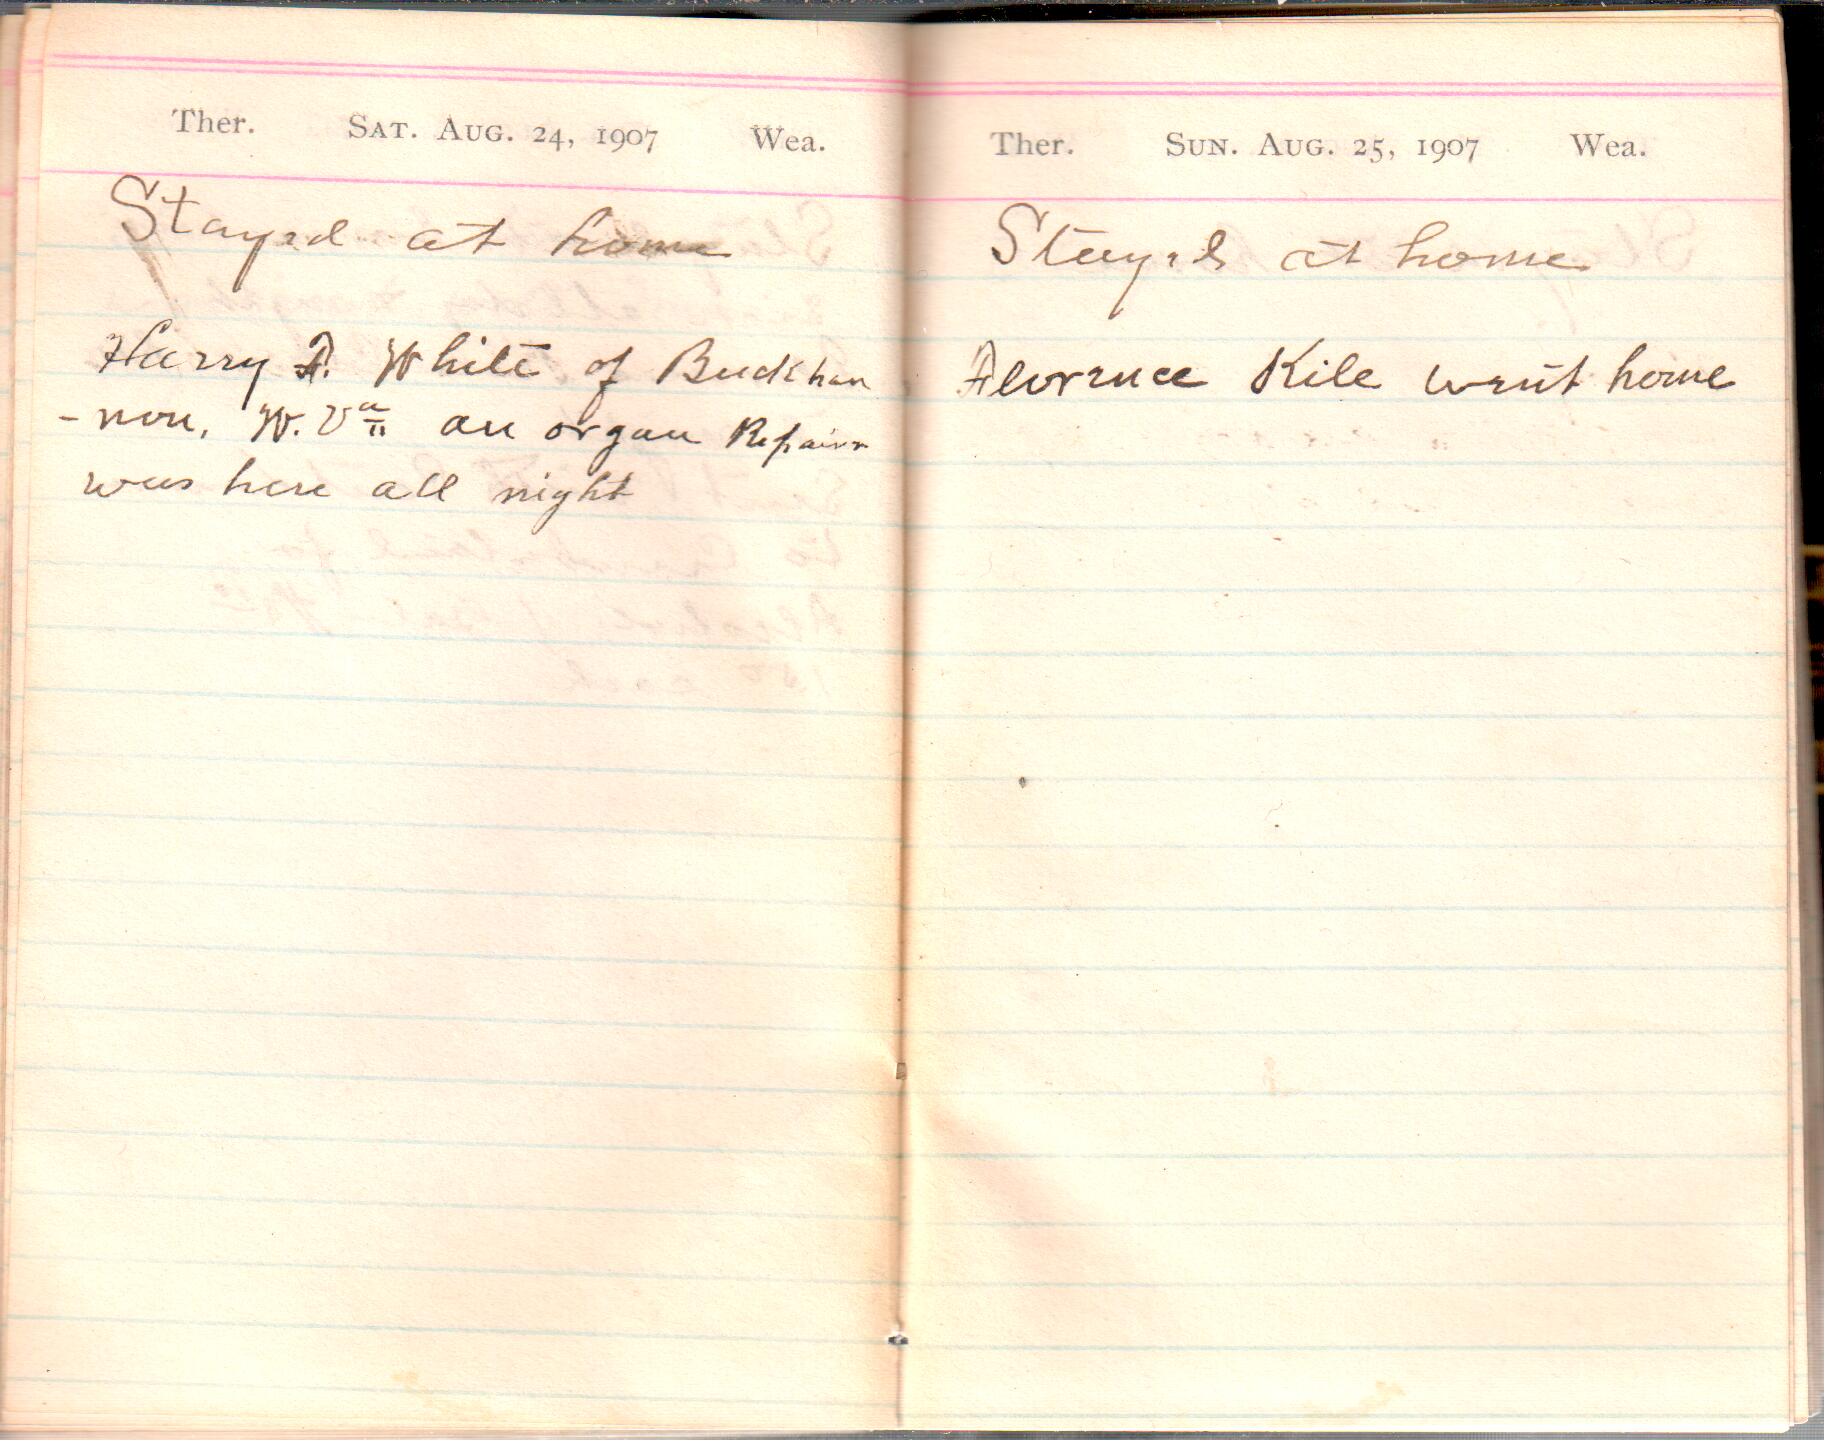 Ther. Sat. Aug. 24, 1907 Wea.
Stayed at home
Harry F. White of Buckhan
- non, W. Va an organ Repairr
was here all night
Ther. Sun. Aug. 25, 1907 Wea.
Stayed at home
Florence Kile went home